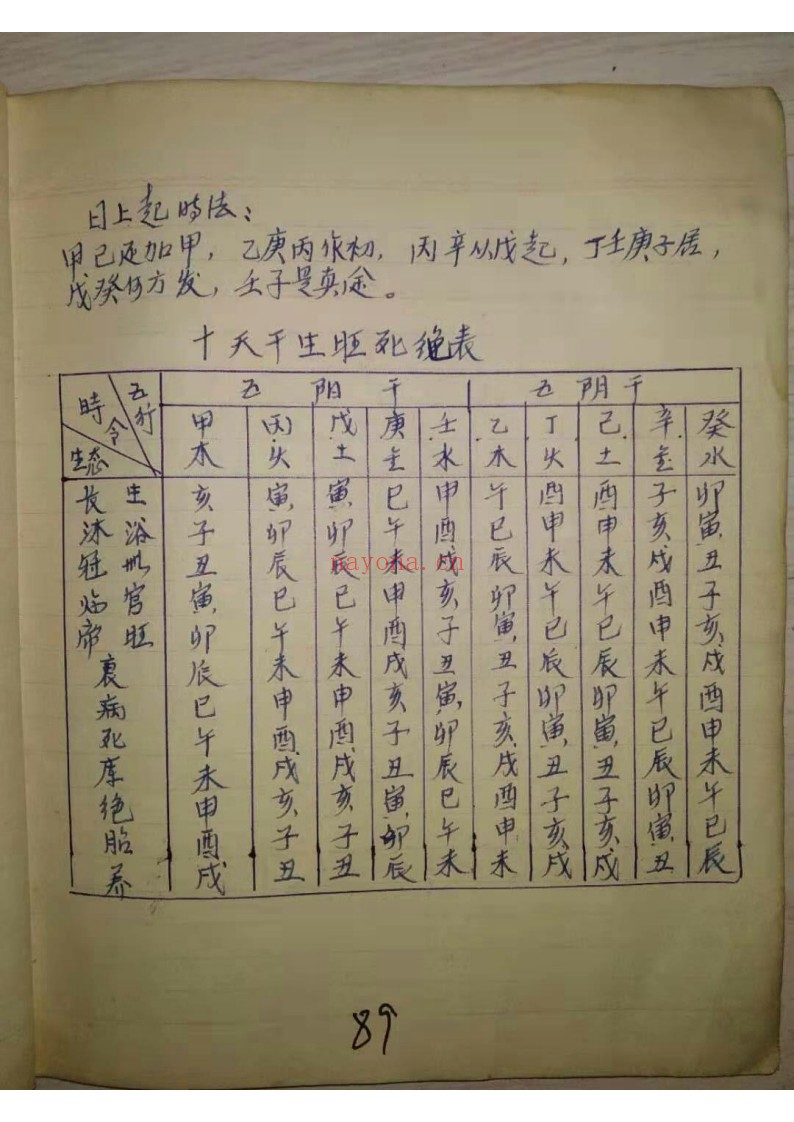 日上起時法：
甲己还加甲，乙庚丙作初，丙辛从戊起，丁壬庚子居，
戊癸何方发，壬子是真途。
十天干生旺死绝表
時令 五行 生态 五阳干 五阴干
甲木 丙火 戊土 庚金 壬水 乙木 丁火 己土 辛金 癸水
长生 亥 寅 寅 巳 申 午 酉 酉 子 卯
沐浴 子 卯 卯 午 酉 巳 申 申 亥 寅
冠 丑 辰 辰 未 戌 辰 未 未 戌 丑
临官 寅 巳 巳 申 亥 卯 午 午 酉 子
帝旺 卯 午 午 酉 子 寅 巳 巳 申 亥
衰 辰 未 未 戌 丑 丑 辰 辰 未 戌
病 巳 申 申 亥 寅 子 卯 卯 午 酉
死 午 酉 酉 子 卯 亥 寅 寅 巳 申
库 未 戌 戌 丑 辰 戌 丑 丑 辰 未
绝 申 亥 亥 寅 巳 酉 子 子 卯 午
胎 酉 子 子 卯 午 申 亥 亥 寅 巳
养 戌 丑 丑 辰 未 未 戌 戌 丑 辰
nayona.cn
89